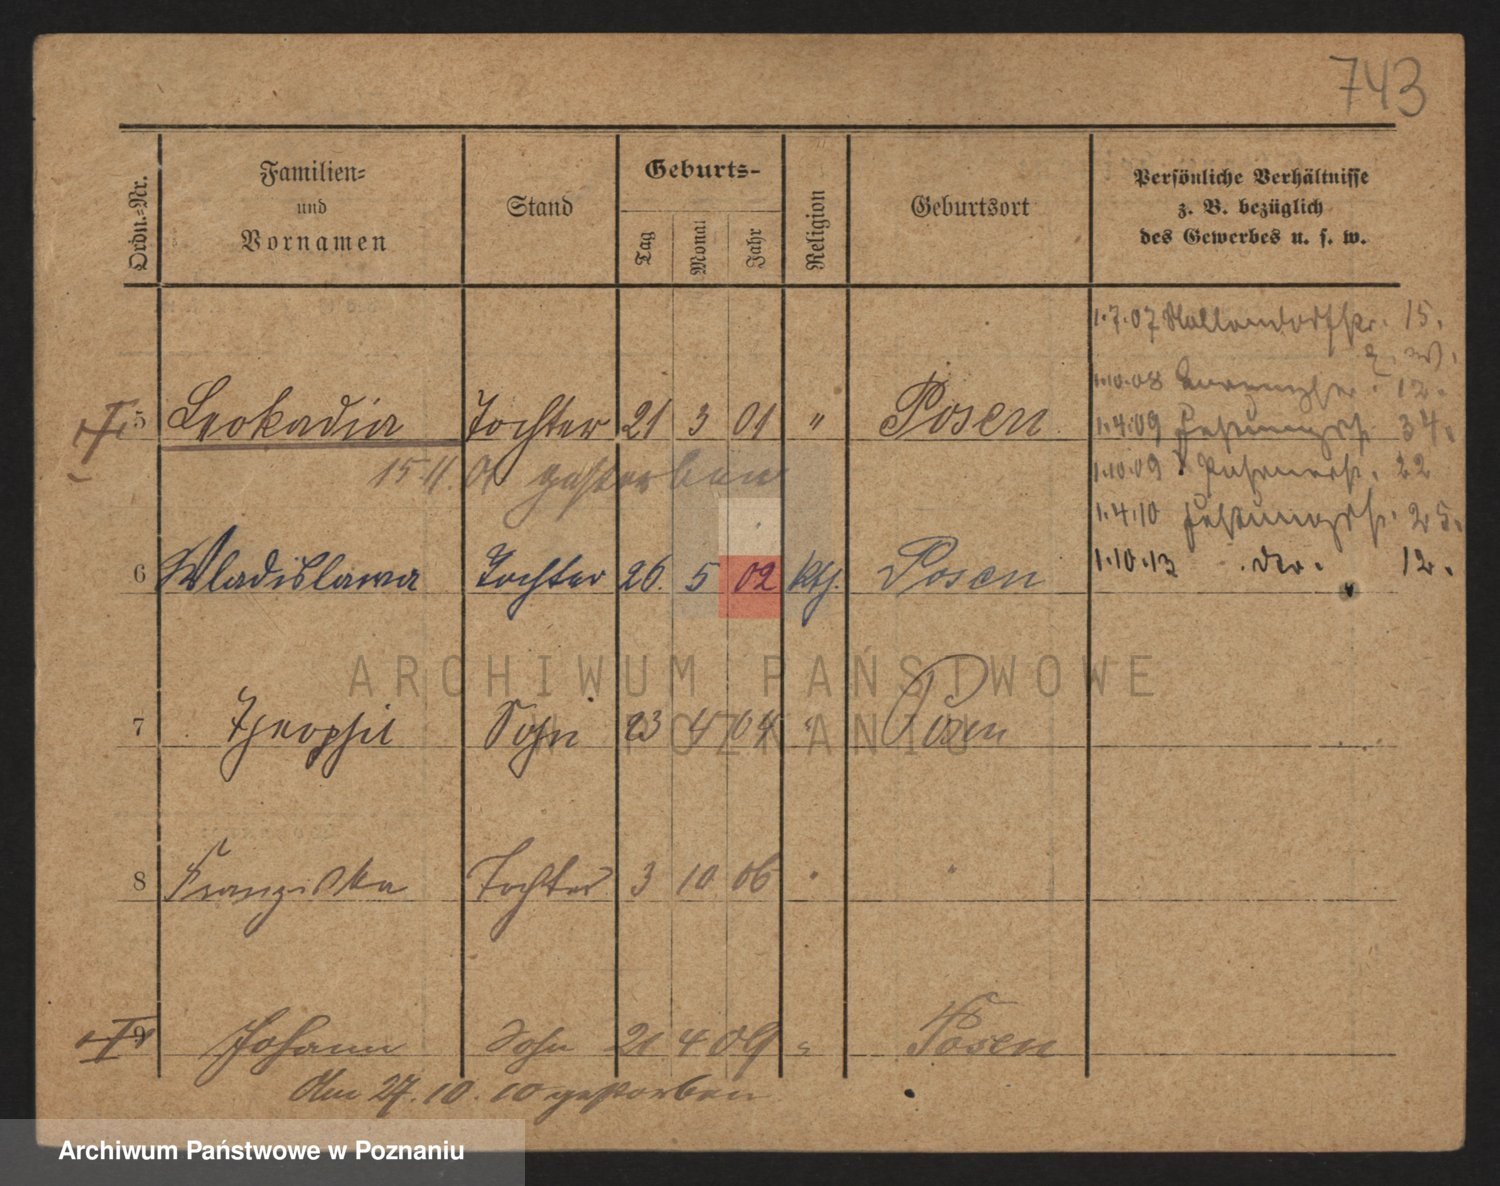 743
Ordn.-Nr.
Familien-
und
Vornamen
Stand
Geburts-
Tag
Monat
Jahr
Religion
Geburtsort
Persönliche Verhältnisse
z. B. bezüglich
des Gewerbes u. s. w.
1.7.07 15.
1.10.08 12.
5 Leokadia Tochter 21 3 01 " Posen
1.4.09 34.
15 11. 01 gestorben
1.10.09 22
1.4.10 25.
6 Wladislawa Tochter 26. 5 02 kth. Posen
1.10.13 12.
ARCHIWUM PAŃSTWOWE
W POZNANIU
7 Theophil Sohn 23 4 04 " Posen
8 Franziska Tochter 3 10 06 " "
9 Johann Sohn 21 4 09 " Posen
Am 27.10.10 gestorben
Archiwum Państwowe w Poznaniu